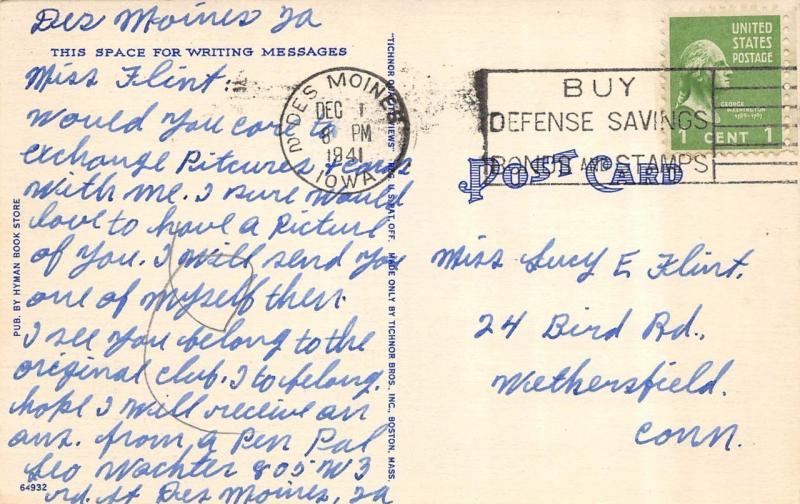 Des Moines Ia
THIS SPACE FOR WRITING MESSAGES
Miss Flint:
Would You care to
exchange Pitcures
with me. I sure would
love to have a Picture
of You. I will send You
one of myself then.
I see You belong to the
original club. I to belong.
hope I will receive an
ans. from a Pen Pal
Leo Wachter 805 W 3
rd. St Des Moines, Ia
64932
PUB. BY HYMAN BOOK STORE
MADE ONLY BY TICHNOR BROS., INC., BOSTON, MASS.
DES MOINES
DEC 1
8 PM
1941
IOWA
BUY
DEFENSE SAVINGS
BONDS AND STAMPS
UNITED
STATES
POSTAGE
GEORGE
WASHINGTON
1789-1797
1 CENT 1
POST CARD
Miss Lucy E Flint.
24 Bird Rd.,
Wethersfield.
Conn.